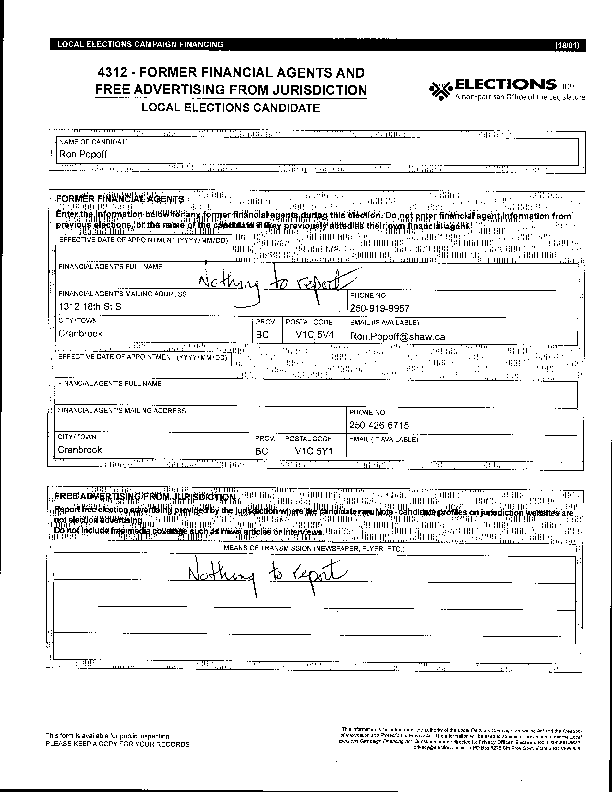 LOCAL ELECTIONS CAMPAIGN FINANCING (18/01)
4312 - FORMER FINANCIAL AGENTS AND
FREE ADVERTISING FROM JURISDICTION
LOCAL ELECTIONS CANDIDATE
ELECTIONS BC
A non-partisan Office of the Legislature
NAME OF CANDIDATE
Ron Popoff
FORMER FINANCIAL AGENTS
Enter the information below for any former financial agents during this election. Do not enter financial agent information from
previous elections, or the name of the candidate if they previously acted as their own financial agent.
EFFECTIVE DATE OF APPOINTMENT (YYYY/MM/DD)
FINANCIAL AGENT'S FULL NAME
Nothing to report
FINANCIAL AGENT'S MAILING ADDRESS PHONE NO
1312 18th St S 250-919-9957
CITY/TOWN PROV. POSTAL CODE EMAIL (IF AVAILABLE)
Cranbrook BC V1C 5V4 Ron.Popoff@shaw.ca
EFFECTIVE DATE OF APPOINTMENT (YYYY/MM/DD)
FINANCIAL AGENT'S FULL NAME
FINANCIAL AGENT'S MAILING ADDRESS PHONE NO
250-426-6715
CITY/TOWN PROV. POSTAL CODE EMAIL (IF AVAILABLE)
Cranbrook BC V1C 5Y1
FREE ADVERTISING FROM JURISDICTION
Report free election advertising provided by the jurisdiction where the candidate ran. Note - candidate profiles on jurisdiction websites are
not election advertising.
Do not include free media coverage such as news articles or interviews.
MEANS OF TRANSMISSION (NEWSPAPER, FLYER, ETC.)
Nothing to report
This form is available for public inspection.
PLEASE KEEP A COPY FOR YOUR RECORDS